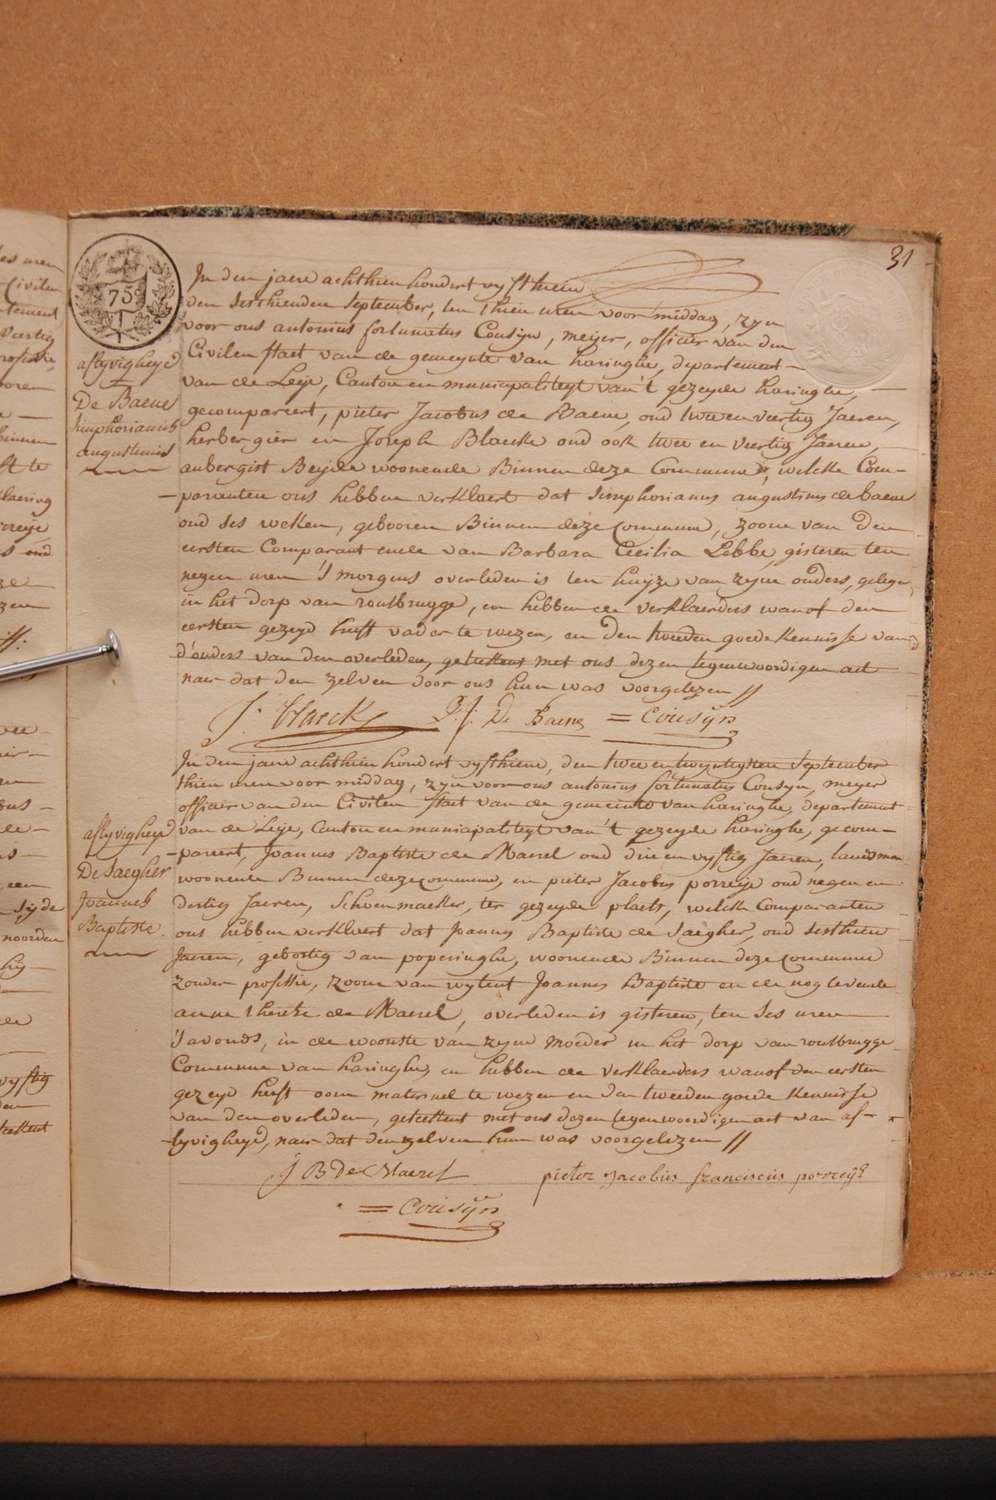 31
75
In den jaere achthien hondert vyfthien
den sesthienden september, ten thien uren voor middag, zyn
voor ons antonius fortunatus Cousyn, meijer, officier van den
Civilen staet van de gemeynte van haringhe, departement
van de Leije, Canton en municipaliteyt van 't gezeyde haringhe,
gecompareert, pieter Jacobus de Baene, oud twee en viertig Jaeren,
herbergier en Joseph Blaeke oud ook twee en viertig Jaeren,
aubergist Beijde woonende Binnen deze Commune, welcke Com-
paranten ons hebben verklaert dat Simphorianus augustinus de baene
oud ses weken, gebooren Binnen deze Commune, zoone van den
eersten Comparant ende van Barbara Cecilia Lebbe, gisteren ten
negen uren 's morgens overleden is ten huyze van zyne ouders, gelegen
in het dorp van rousbrugge, en hebben de verklaerders wanof den
eersten gezeyd heeft vader te wezen, en den tweeden goede kennisse van
d'ouders van den overleden, geteekent met ons dezen tegenwoordigen act
naer dat den zelven door ons hun was voorgelezen //
aflyvigheyd
De Baene
Simphorianus
augustinus
P. J. De Baene = Cousÿn
In den jaere achthien hondert vyfthiene, den twee en twyntigsten september
thien uren voor middag, zyn voor ons antonius fortunatus Cousyn, meyer
officier van den Civilen staet van de gemeente van haringhe, departement
van de Leije, Canton en municipaliteyt van 't gezeyde haringhe, gecom-
pareert, Joannes Baptiste de Maerel oud drie en vyftig Jaeren, landsman
woonende Binnen deze Commune, en pieter Jacobus porreije oud negen en
dertig Jaeren, schoenmaeker, ter gezeyde plaets, welcke Comparanten
ons hebben verklaert dat Joannes Baptiste de Saegher, oud sesthien
Jaeren, gebortig van poperinghe, woonende Binnen deze Commune
zonder professie, zoone van wylent Joannes Baptiste en de nog levende
anne therese de Maerel, overleden is gisteren, ten ses uren
's avonds, in de woonste van zyne moeder in het dorp van rousbrugge
Commune van haringhe, en hebben de verklaerders wanof den eersten
gezeyd heeft oom maternel te wezen en den tweeden goede kennisse
van den overleden, geteekent met ons dezen tegenwoordigen act van af-
lyvigheyd, naer dat den zelven hun was voorgelezen //
aflyvigheyd
De Saegher
Joannes
Baptiste
J B De Maerel pieter Jacobus franciscus porreije
= Cousÿn